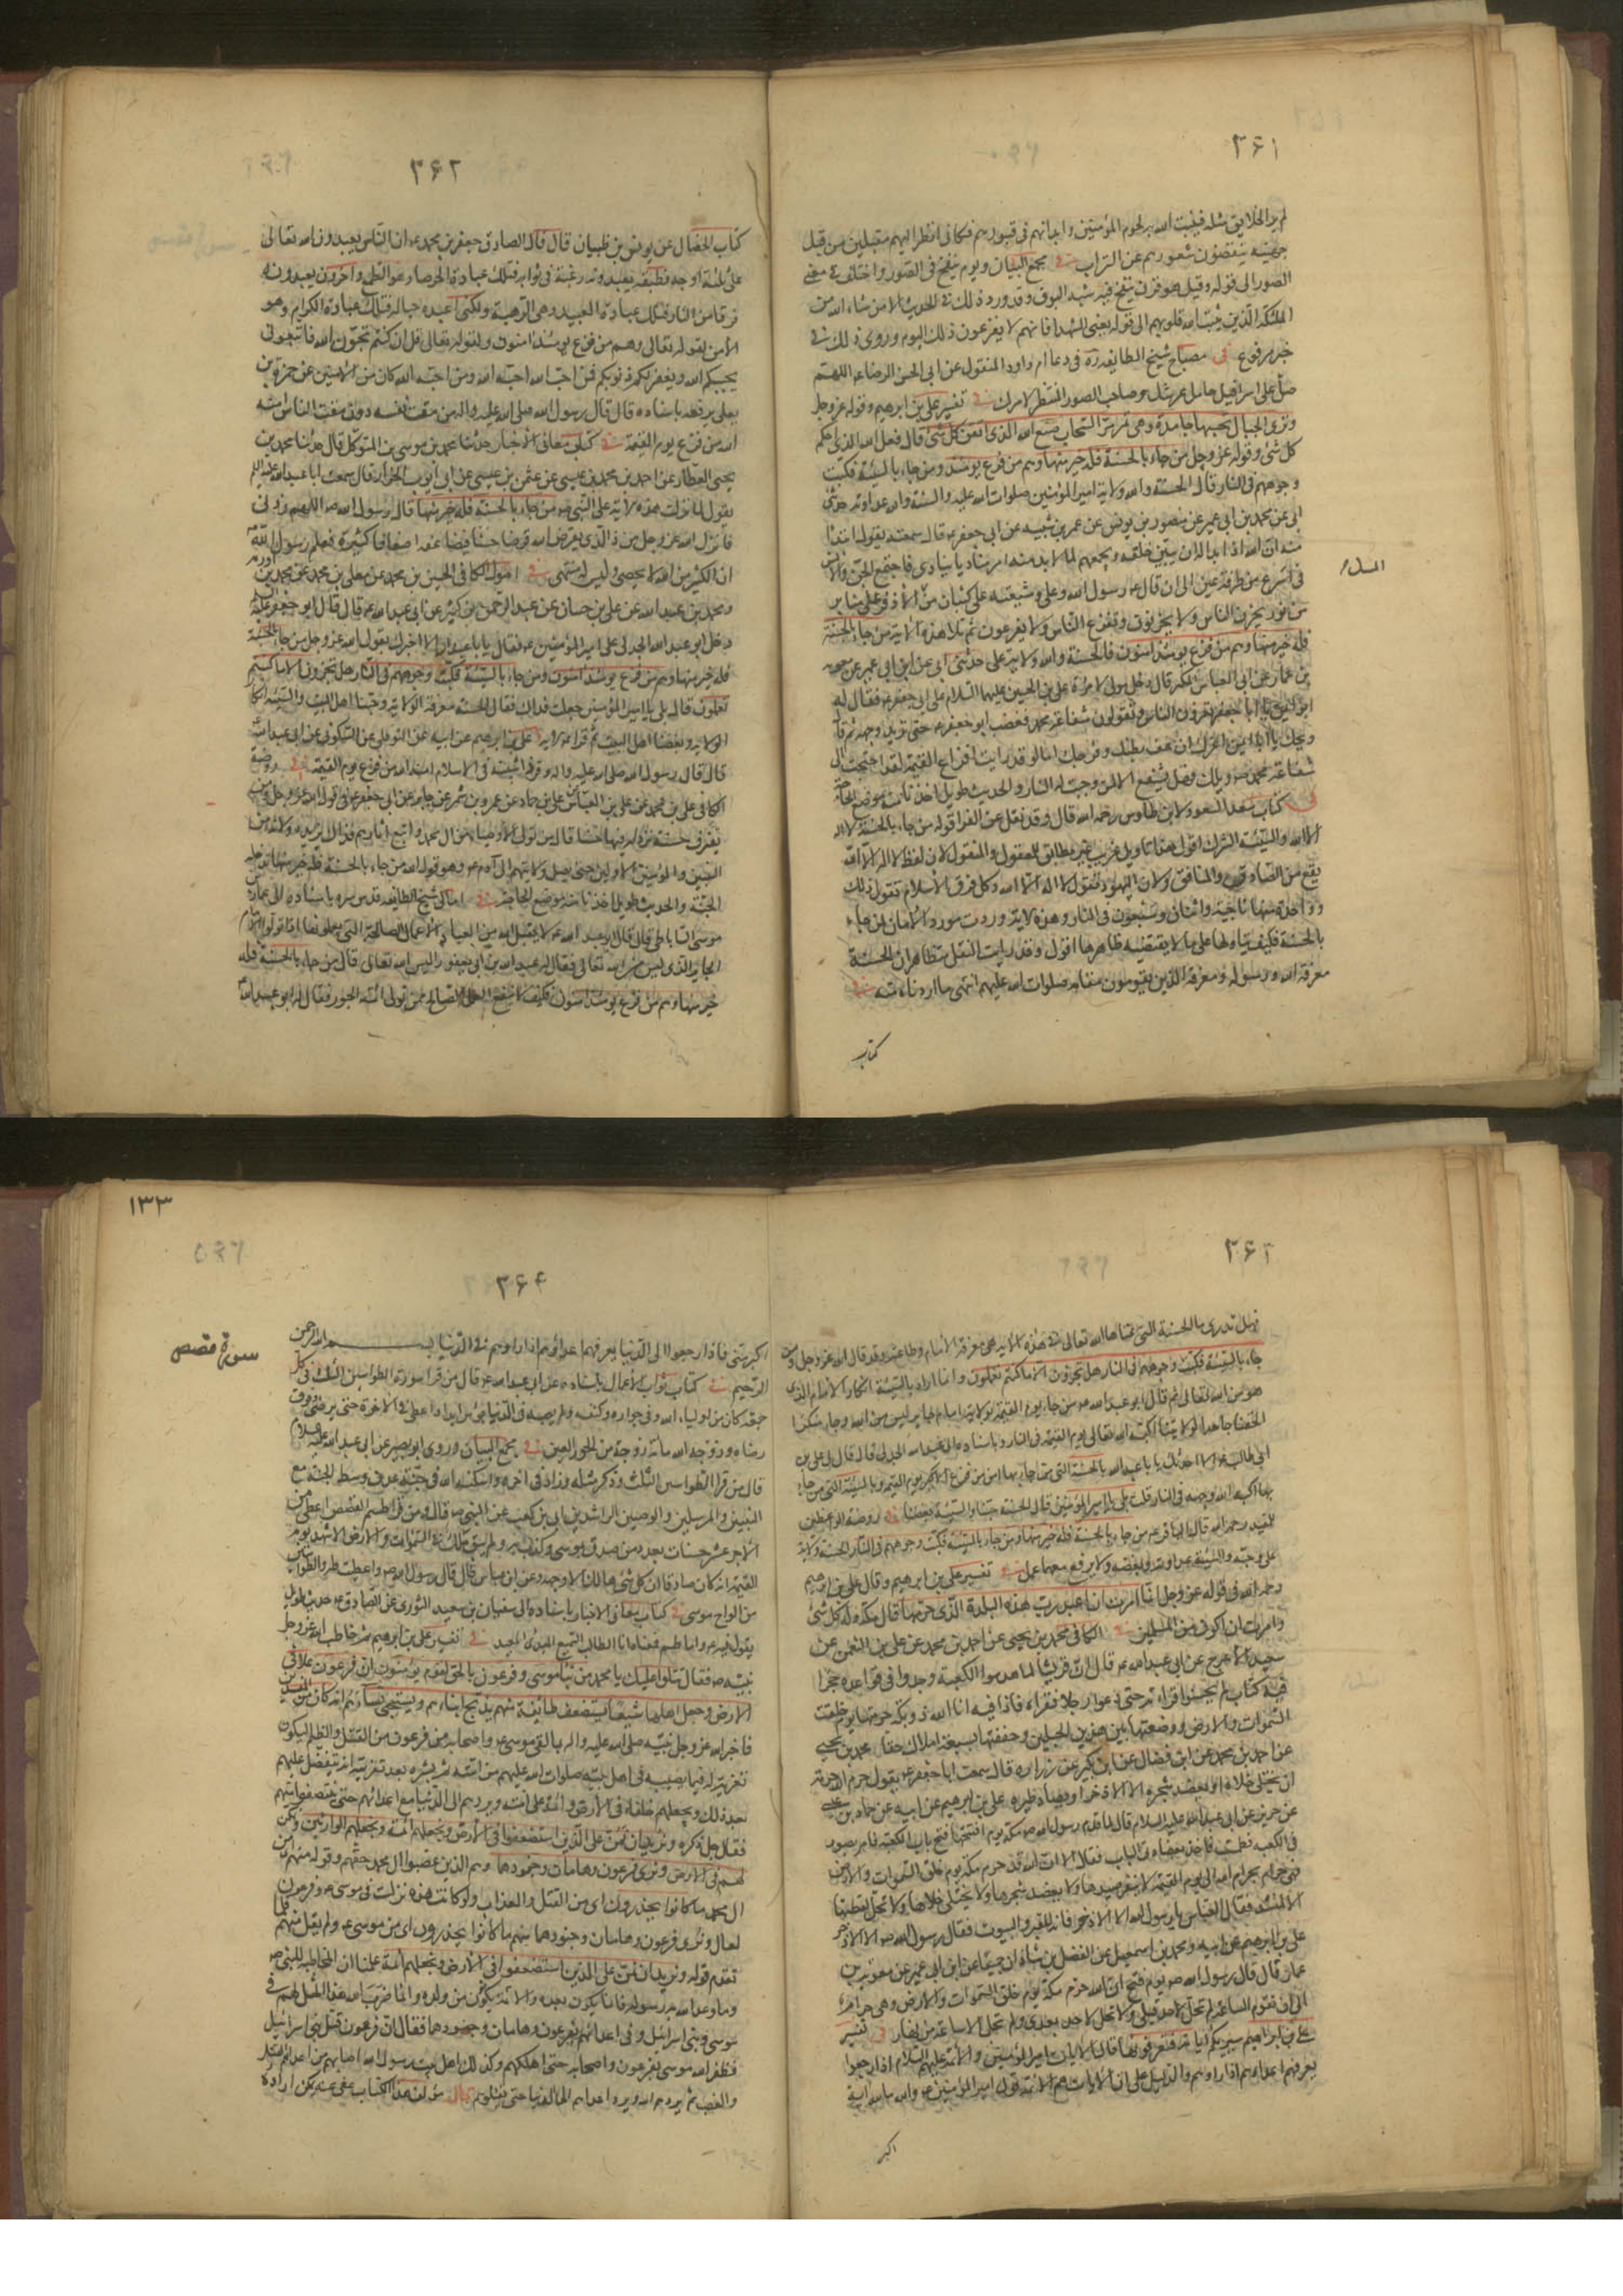 ٣۶١
لم ير الخلايق مثله فينبت الله به لحوم المؤمنين وابدانهم فى قبورهم فكانى انظر اليهم مقبلين من قبل
جهينه ينفضون شعورهم عن التراب فى مجمع البيان ويوم ينفخ فى الصور واختلف فى معنى
الصور الى قوله وقيل هو قرن ينفخ فيه شبه البوق وقد ورد ذلك فى الحديث الا من شاء الله من
الملئكة الذين يثبت الله قلوبهم الى قوله يعنى الشهدا فانهم لا يفزعون ذلك اليوم وروى ذلك فى
خبر مرفوع فى مصباح شيخ الطايفه ره فى دعا ام داود المنقول عن ابى الحسن الرضا عه اللهم
صل على اسرافيل حامل عرشك وصاحب الصور المنتظر لامرك فى تفسير على بن ابرهيم وقوله عز وجل
وترى الجبال تحسبها جامدة وهى تمر مر السحاب صنع الله الذى اتقن كل شئ قال فعل الله الذى احكم
كل شئ وقوله عز وجل من جاء بالحسنة فله خير منها وهم من فزع يومئذ ومن جاء بالسيئة فكبت
وجوههم فى النار قال الحسنة والله ولاية امير المؤمنين صلوات الله عليه والسيئة والله عداوته حدثنى
ابى عن محمد بن ابى عمير عن منصور بن يونس عن عمر بن شيبه عن ابى جعفر عه قال سمعته يقول ابتدا
منه ان الله اذا بدا له ان يبين خلقه ويجمعهم لما لا بد منه امر مناديا ينادى فاجتمع الجن والانس
فى اسرع من طرفة عين الى ان قال عه رسول الله وعلى وشيعته على كثبان من المسك الاذفر على منابر
من نور يحزن الناس ولا يحزنون وتفزع الناس ولا يفزعون ثم تلا هذه الاية من جاء بالحسنة
فله خير منها وهم من فزع يومئذ امنون فالحسنة والله ولاية على حدثنى ابى عن ابن ابى عمير عن معويه
بن عمار عن ابى العباس المكبر قال دخل مولى لامراة على بن الحسين عليهما السلام على ابى جعفر عه فقال له
شفاعة محمد صه ويلك وهل يشفع الا لمن وجبت له النار والحديث طويل اخذنا منه موضع الحاجة
فى كتاب سعد السعود لابن طاوس رحمه الله قال وقد نقل عن الفرا قوله من جاء بالحسنة لا اله
الا الله والسيئة الشرك اقول هذا تاويل غريب غير مطابق للمعقول والمنقول لان لفظ لا اله الا الله
يقع من الصادق والمنافق ولان اليهود تقول لا اله الا الله وكل فرق الاسلام تقول ذلك
وواحدة منها ناجية واثنان وسبعون فى النار وهذه الاية وردت مورد الامان لمن جاء
بالحسنة فكيف يتاولها على ما لا يقتضيه ظاهرها اقول وقد رايت النقل متظاهرا ان الحسنة
معرفة الله ورسوله ومعرفة الذين يقومون مقامه صلوات الله عليهم انتهى ما اردناه منه فى
كتاب
٣۶٢
كتاب الخصال عن يونس بن ظبيان قال قال الصادق جعفر بن محمد عه ان الناس يعبدون الله تعالى
على ثلثة اوجه فطبقة يعبدونه رغبة فى ثوابه فتلك عبادة الحرصاء وهو الطمع واخرون يعبدونه
فرقا من النار فتلك عبادة العبيد وهى الرهبة ولكنى اعبده حبا له فتلك عبادة الكرام وهو
الامن لقوله تعالى وهم من فزع يومئذ امنون ولقوله تعالى قل ان كنتم تحبون الله فاتبعونى
يحببكم الله ويغفر لكم ذنوبكم فمن احب الله احبه الله ومن احبه الله كان من الامنين عن حمزة بن
يعلى يرفعه باسناده قال قال رسول الله صلى الله عليه واله من مقت نفسه دون مقت الناس امنه
الله من فزع يوم القيمة فى كتاب معانى الاخبار حدثنا محمد بن موسى بن المتوكل قال حدثنا محمد بن
يحيى العطار عن احمد بن محمد بن عيسى عن عثمن بن عيسى عن ابى ايوب الخزاز قال سمعت ابا عبد الله عليه السلم
يقول لما نزلت هذه الاية على النبى صه من جاء بالحسنة فله خير منها قال رسول الله صه اللهم زدنى
فانزل الله عز وجل من ذا الذى يقرض الله قرضا حسنا فيضاعفه اضعافا كثيرة فعلم رسول الله
ان الكثير من الله لا يحصى وليس له منتهى فى اصول الكافى الحسين بن محمد عن معلى بن محمد عن محمد بن اورمه
ومحمد بن عبد الله عن على بن حسان عن عبد الرحمن بن كثير عن ابى عبد الله عه قال قال ابو جعفر عليه السلم
دخل ابو عبد الله الجدلى على امير المؤمنين عه فقال يا ابا عبد الله الا اخبرك بقول الله عز وجل من جاء بالحسنة
فله خير منها وهم من فزع يومئذ امنون ومن جاء بالسيئة فكبت وجوههم فى النار هل تجزون الا ما كنتم
تعملون قال بلى يا امير المؤمنين جعلت فداك فقال الحسنة معرفة الولاية وحبنا اهل البيت والسيئة انكار
الولاية وبغضنا اهل البيت ثم قرا عه الاية على بن ابرهيم عن ابيه عن النوفلى عن السكونى عن ابى عبد الله
قال قال رسول الله صلى الله عليه واله وقر ذا شيبته فى الاسلام امنه الله من فزع يوم القيمة فى روضة
الكافى على بن محمد عن على بن العباس عن على بن حماد عن عمرو بن شمر عن جابر عن ابى جعفر عه فى قوله الله عز وجل ومن
يقترف حسنة نزد له فيها حسنا قال من تولى الاوصياء من ال محمد واتبع اثارهم فذاك يزيده ولاية من
النبيين والمؤمنين الاولين حتى يصل ولايتهم الى ادم عه وهو قول الله من جاء بالحسنة فله خير منها تدخله
الجنة والحديث طويل اخذنا منه موضع الحاجة فى امالى شيخ الطايفه قدس سره باسناده الى عمار بن
موسى الساباطى قال قال ابو عبد الله عه لا يقبل الله من العباد الاعمال الصالحة التى يعملونها اذا تولوا الامام
الجاير الذى ليس من الله تعالى فقال له عبد الله بن ابى يعفور اليس الله تعالى قال من جاء بالحسنة فله
خير منها وهم من فزع يومئذ امنون فكيف لا ينفع العمل الصالح ممن تولى ائمة الجور فقال له ابو عبد الله
فهل تدرى ما الحسنة التى عناها الله تعالى فى هذه الاية هى معرفة الامام وطاعته وقد قال الله عز وجل ومن
جاء بالسيئة فكبت وجوههم فى النار هل تجزون الا ما كنتم تعملون وانما اراد بالسيئة انكار الامام الذى
هو من الله تعالى ثم قال ابو عبد الله عه من جاء يوم القيمة بولاية امام جاير ليس من الله وجاء منكرا
لحقنا جاحدا لولايتنا اكبه الله تعالى يوم القيمة فى النار وباسناده الى ابى عبد الله الجدلى قال قال لى على بن
ابى طالب عه الا احدثك يا ابا عبد الله بالحسنة التى من جاء بها امن من فزع الاكبر يوم القيمة وبالسيئة التى من جاء
بها اكبه الله وجهه فى النار قلت بلى يا امير المؤمنين قال الحسنة حبنا والسيئة بغضنا فى روضة الواعظين
للمفيد رحمه الله قال الباقر عه من جاء بالحسنة فله خير منها ومن جاء بالسيئة فكبت وجوههم فى النار الحسنة ولاية
على وحبه والسيئة عداوته وبغضه ولا يرفع معهما عمل فى تفسير على بن ابرهيم وقال على بن ابرهيم
رحمه الله فى قوله عز وجل انما امرت ان اعبد رب هذه البلدة الذى حرمها قال مكة وله كل شئ
وامرت ان اكون من المسلمين فى الكافى محمد بن يحيى عن احمد بن محمد عن على بن النعمن عن
سعيد الاعرج عن ابى عبد الله عه قال ان قريشا لما هدموا الكعبة وجدوا فى قواعده حجرا
فيه كتاب لم يحسنوا قراءته حتى دعوا رجلا فقراه فاذا فيه انا الله ذو بكة حرمتها يوم خلقت
السموات والارض ووضعتها بين هذين الجبلين وحففتها بسبعة املاك حفا محمد بن يحيى
عن احمد بن محمد عن ابن فضال عن ابن بكير عن زراره قال سمعت ابا جعفر عه يقول حرم الله حرمه
ان يختلى خلاه او يعضد شجره الا الاذخر او يصاد طيره على بن ابرهيم عن ابيه عن حماد بن عيسى
عن حريز عن ابى عبد الله عليه السلام قال لما قدم رسول الله صه مكة يوم افتتحها فتح باب الكعبة فامر بصور
فى الكعبه فطمست فاخذ بعضادتى الباب فقال الا ان الله قد حرم مكة يوم خلق السموات والارض
فهى حرام بحرام الله الى يوم القيمة لا ينفر صيدها ولا يعضد شجرها ولا يختلى خلاها ولا تحل لقطتها
الا لمنشد فقال العباس يا رسول الله الا الاذخر فانه للقبر والبيوت فقال رسول الله صه الا الاذخر
على بن ابرهيم عن ابيه ومحمد بن اسمعيل عن الفضل بن شاذان جميعا عن ابن ابى عمير عن معوية بن
عمار قال قال رسول الله صه يوم فتح ان الله حرم مكة يوم خلق السموات والارض وهى حرام
الى ان تقوم الساعة لم تحل لاحد قبلى ولا تحل لاحد بعدى ولم تحل لى الا ساعة من نهار فى تفسير
على بن ابرهيم سيريكم اياته فتعرفونها قال الايات امير المؤمنين والائمة عليهم السلام اذا رجعوا
يعرفهم اعداؤهم اذا راوهم والدليل على ان الايات هم الائمة قول امير المؤمنين صه والله ما لله اية
اكبر
١٣٣
٣۶۴
سورة قصص
اكبر منى فاذا رجعوا الى الدنيا يعرفهم اعداؤهم اذا راوهم فى الدنيا بسم الله الرحمن
الرحيم فى كتاب ثواب الاعمال باسناده عن ابى عبد الله عه قال من قرا سورة الطواسين الثلث فى كل
جمعة كان من اولياء الله وفى جواره وكنفه ولم يصبه فى الدنيا بؤس ابدا واعطى فى الاخرة حتى يرضى وفوق
رضاه وزوجه الله مائة زوجة من الحور العين فى مجمع البيان وروى ابو بصير عن ابى عبد الله عليه السلام
قال من قرا الطواسين الثلث وذكر مثله وزاد فى اخره واسكنه الله فى جنة عدن وسط الجنة مع
النبيين والمرسلين والوصيين الراشدين ابى بن كعب عن النبى صه قال ومن قرا طسم القصص اعطى من
الاجر عشر حسنات بعدد من صدق بموسى وكذب به ولم يبق ملك فى السموات والارض الا شهد له يوم
القيمة انه كان صادقا ان كل شئ هالك الا وجهه وعن ابن عباس قال قال رسول الله صه واعطيت طه والطواسين
من الواح موسى فى كتاب معانى الاخبار باسناده الى سفيان بن سعيد الثورى عن الصادق عه حديث طويل
يقول فيه عه واما طسم فمعناه انا الطالب السميع المبدئ المعيد فى تفسير على بن ابرهيم ثم خاطب الله عز وجل
نبيه صه فقال نتلوا عليك يا محمد من نبا موسى وفرعون بالحق لقوم يؤمنون ان فرعون علا فى
الارض وجعل اهلها شيعا يستضعف طايفة منهم يذبح ابناءهم ويستحيى نساءهم انه كان من المفسدين
فاخبر الله عز وجل نبيه صلى الله عليه واله بما لقى موسى عه واصحابه من فرعون من القتل والظلم ليكون
تعزية له فيما يصيبه فى اهل بيته صلوات الله عليهم من امته ثم بشره بعد تعزيته انه يتفضل عليهم
بعد ذلك ويجعلهم خلفاء فى الارض وائمة على امته ويردهم الى الدنيا مع اعدائهم حتى ينتصفوا منهم
فقال جل ذكره ونريد ان نمن على الذين استضعفوا فى الارض ونجعلهم ائمة ونجعلهم الوارثين ونمكن
لهم فى الارض ونرى فرعون وهامان وجنودهما وهم الذين غصبوا ال محمد حقهم وقوله منهم اى من
ال محمد ما كانوا يحذرون اى من القتل والعذاب ولو كانت هذه نزلت فى موسى عه وفرعون
لقال ونرى فرعون وهامان وجنودهما منه ما كانوا يحذرون اى من موسى عه ولم يقل منهم فلما
تقدم قوله ونريد ان نمن على الذين استضعفوا فى الارض ونجعلهم ائمة علمنا ان المخاطبة للنبى صه
وما وعد الله به رسوله فانما يكون بعده والائمة يكونون من ولده وانما ضرب الله هذا المثل لهم فى
موسى وبنى اسرائيل وفى اعدائهم بفرعون وهامان وجنودهما فقال ان فرعون قتل بنى اسرائيل
فظفر الله موسى بفرعون واصحابه حتى اهلكهم وكذلك اهل بيت رسول الله اصابهم من اعدائهم القتل
والغصب ثم يردهم الله ويرد اعداءهم الى الدنيا حتى يقتلوهم قال مؤلف هذا الكتاب عفى عنه يمكن ارادة